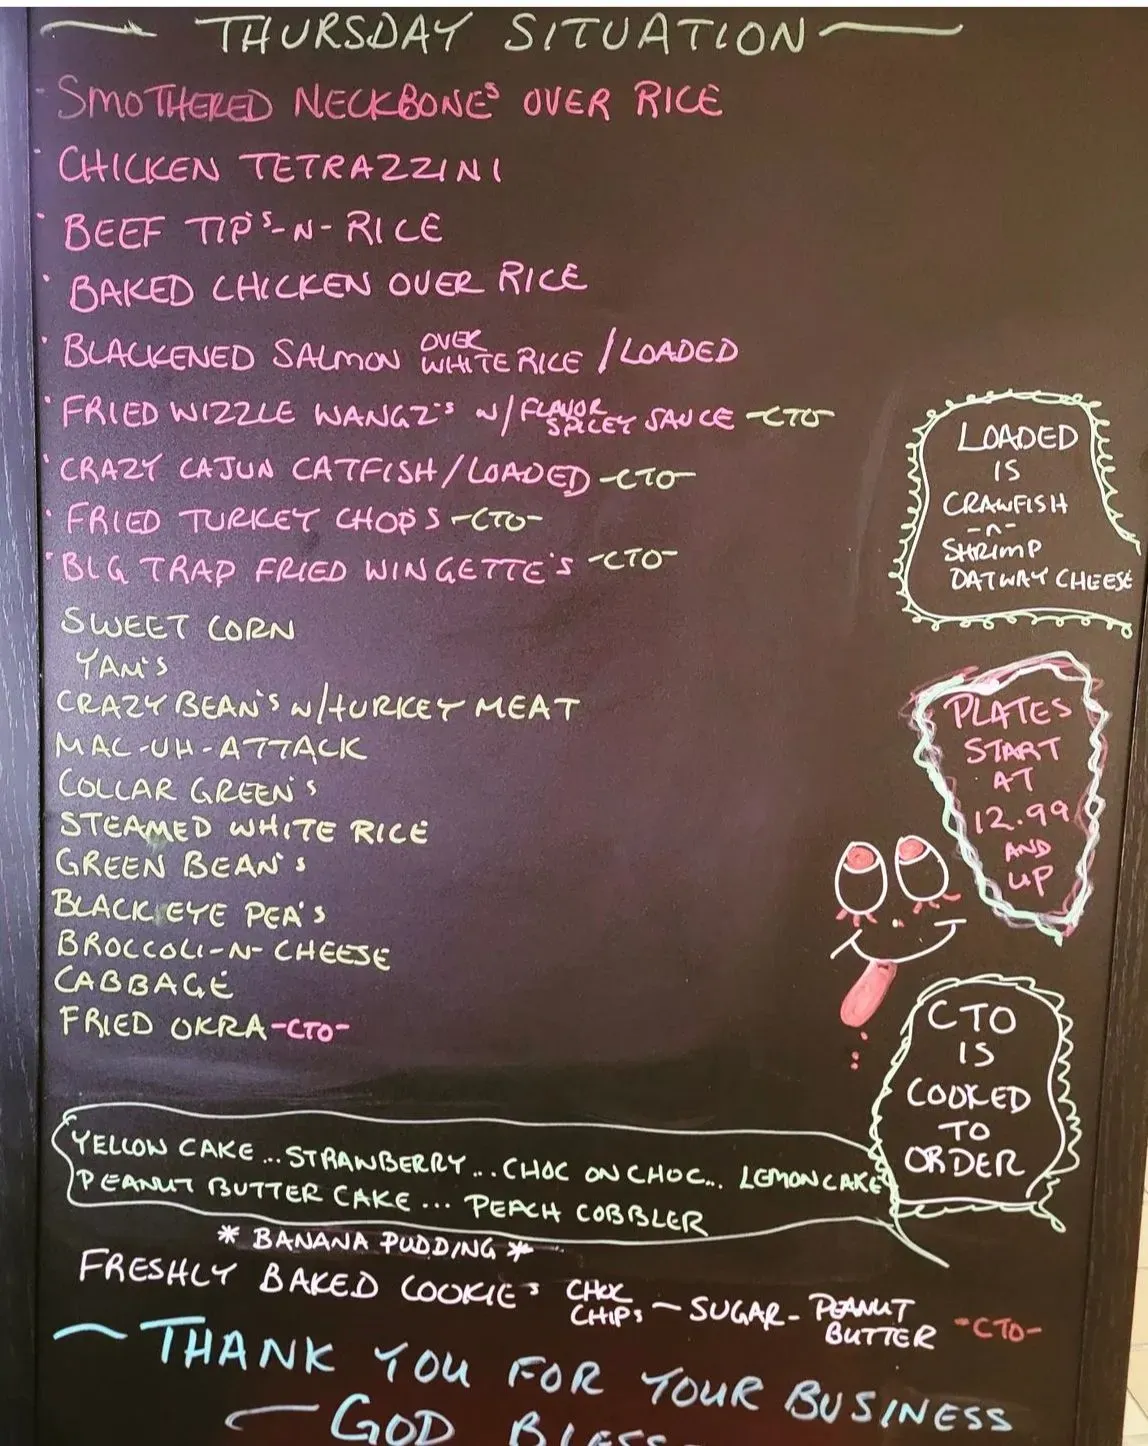 THURSDAY SITUATION
SMOTHERED NECKBONE'S OVER RICE
CHICKEN TETRAZZINI
BEEF TIP'S-N-RICE
BAKED CHICKEN OVER RICE
BLACKENED SALMON OVER WHITE RICE / LOADED
FRIED WIZZLE WANGZ'S W/ FLAVOR SPICEY SAUCE -CTO-
CRAZY CAJUN CATFISH / LOADED -CTO-
FRIED TURKEY CHOP'S -CTO-
BIG TRAP FRIED WINGETTE'S -CTO-
SWEET CORN
YAM'S
CRAZY BEAN'S W/TURKEY MEAT
MAC-UH-ATTACK
COLLAR GREEN'S
STEAMED WHITE RICE
GREEN BEAN'S
BLACK EYE PEA'S
BROCCOLI-N-CHEESE
CABBAGE
FRIED OKRA -CTO-
LOADED
IS
CRAWFISH
-N-
SHRIMP
DATWAY CHEESE
PLATES
START
AT
12.99
AND
UP
CTO
IS
COOKED
TO
ORDER
YELLOW CAKE ... STRAWBERRY ... CHOC ON CHOC... LEMON CAKE
PEANUT BUTTER CAKE ... PEACH COBBLER
* BANANA PUDDING *
FRESHLY BAKED COOKIE'S CHOC CHIPS - SUGAR - PEANUT BUTTER -CTO-
THANK YOU FOR YOUR BUSINESS
GOD BLESS